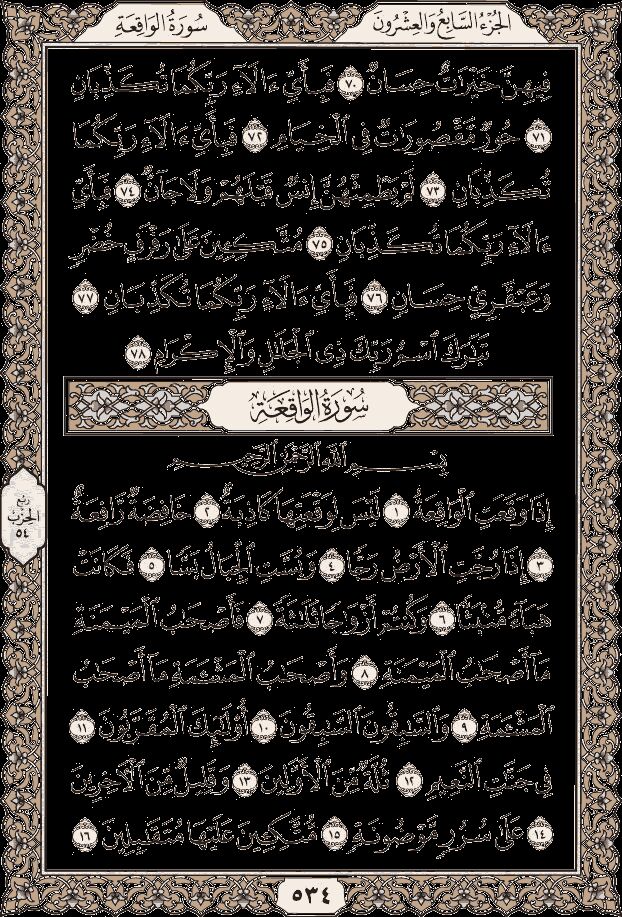 الجُزْءُ السَّابِعُ وَالعِشْرُونَ
سُورَةُ الوَاقِعَةِ
فِيهِنَّ خَيْرَٰتٌ حِسَانٌ ٧٠ فَبِأَيِّ ءَالَآءِ رَبِّكُمَا تُكَذِّبَانِ
٧١ حُورٌ مَّقْصُورَٰتٌ فِي ٱلْخِيَامِ ٧٢ فَبِأَيِّ ءَالَآءِ رَبِّكُمَا
تُكَذِّبَانِ ٧٣ لَمْ يَطْمِثْهُنَّ إِنسٌ قَبْلَهُمْ وَلَا جَآنٌّ ٧٤ فَبِأَيِّ
ءَالَآءِ رَبِّكُمَا تُكَذِّبَانِ ٧٥ مُتَّكِـِٔينَ عَلَىٰ رَفْرَفٍ خُضْرٍ
وَعَبْقَرِيٍّ حِسَانٍ ٧٦ فَبِأَيِّ ءَالَآءِ رَبِّكُمَا تُكَذِّبَانِ ٧٧
تَبَٰرَكَ ٱسْمُ رَبِّكَ ذِي ٱلْجَلَٰلِ وَٱلْإِكْرَامِ ٧٨
سُورَةُ الوَاقِعَةِ
بِسْمِ ٱللَّهِ ٱلرَّحْمَٰنِ ٱلرَّحِيمِ
إِذَا وَقَعَتِ ٱلْوَاقِعَةُ ١ لَيْسَ لِوَقْعَتِهَا كَاذِبَةٌ ٢ خَافِضَةٌ رَّافِعَةٌ
٣ إِذَا رُجَّتِ ٱلْأَرْضُ رَجًّا ٤ وَبُسَّتِ ٱلْجِبَالُ بَسًّا ٥ فَكَانَتْ
هَبَآءً مُّنۢبَثًّا ٦ وَكُنتُمْ أَزْوَٰجًا ثَلَٰثَةً ٧ فَأَصْحَٰبُ ٱلْمَيْمَنَةِ
مَآ أَصْحَٰبُ ٱلْمَيْمَنَةِ ٨ وَأَصْحَٰبُ ٱلْمَشْـَٔمَةِ مَآ أَصْحَٰبُ
ٱلْمَشْـَٔمَةِ ٩ وَٱلسَّٰبِقُونَ ٱلسَّٰبِقُونَ ١٠ أُو۟لَٰٓئِكَ ٱلْمُقَرَّبُونَ ١١
فِي جَنَّٰتِ ٱلنَّعِيمِ ١٢ ثُلَّةٌ مِّنَ ٱلْأَوَّلِينَ ١٣ وَقَلِيلٌ مِّنَ ٱلْـَٔاخِرِينَ
١٤ عَلَىٰ سُرُرٍ مَّوْضُونَةٍ ١٥ مُّتَّكِـِٔينَ عَلَيْهَا مُتَقَٰبِلِينَ ١٦
رُبع
الحِزْبِ
٥٤
٥٣٤